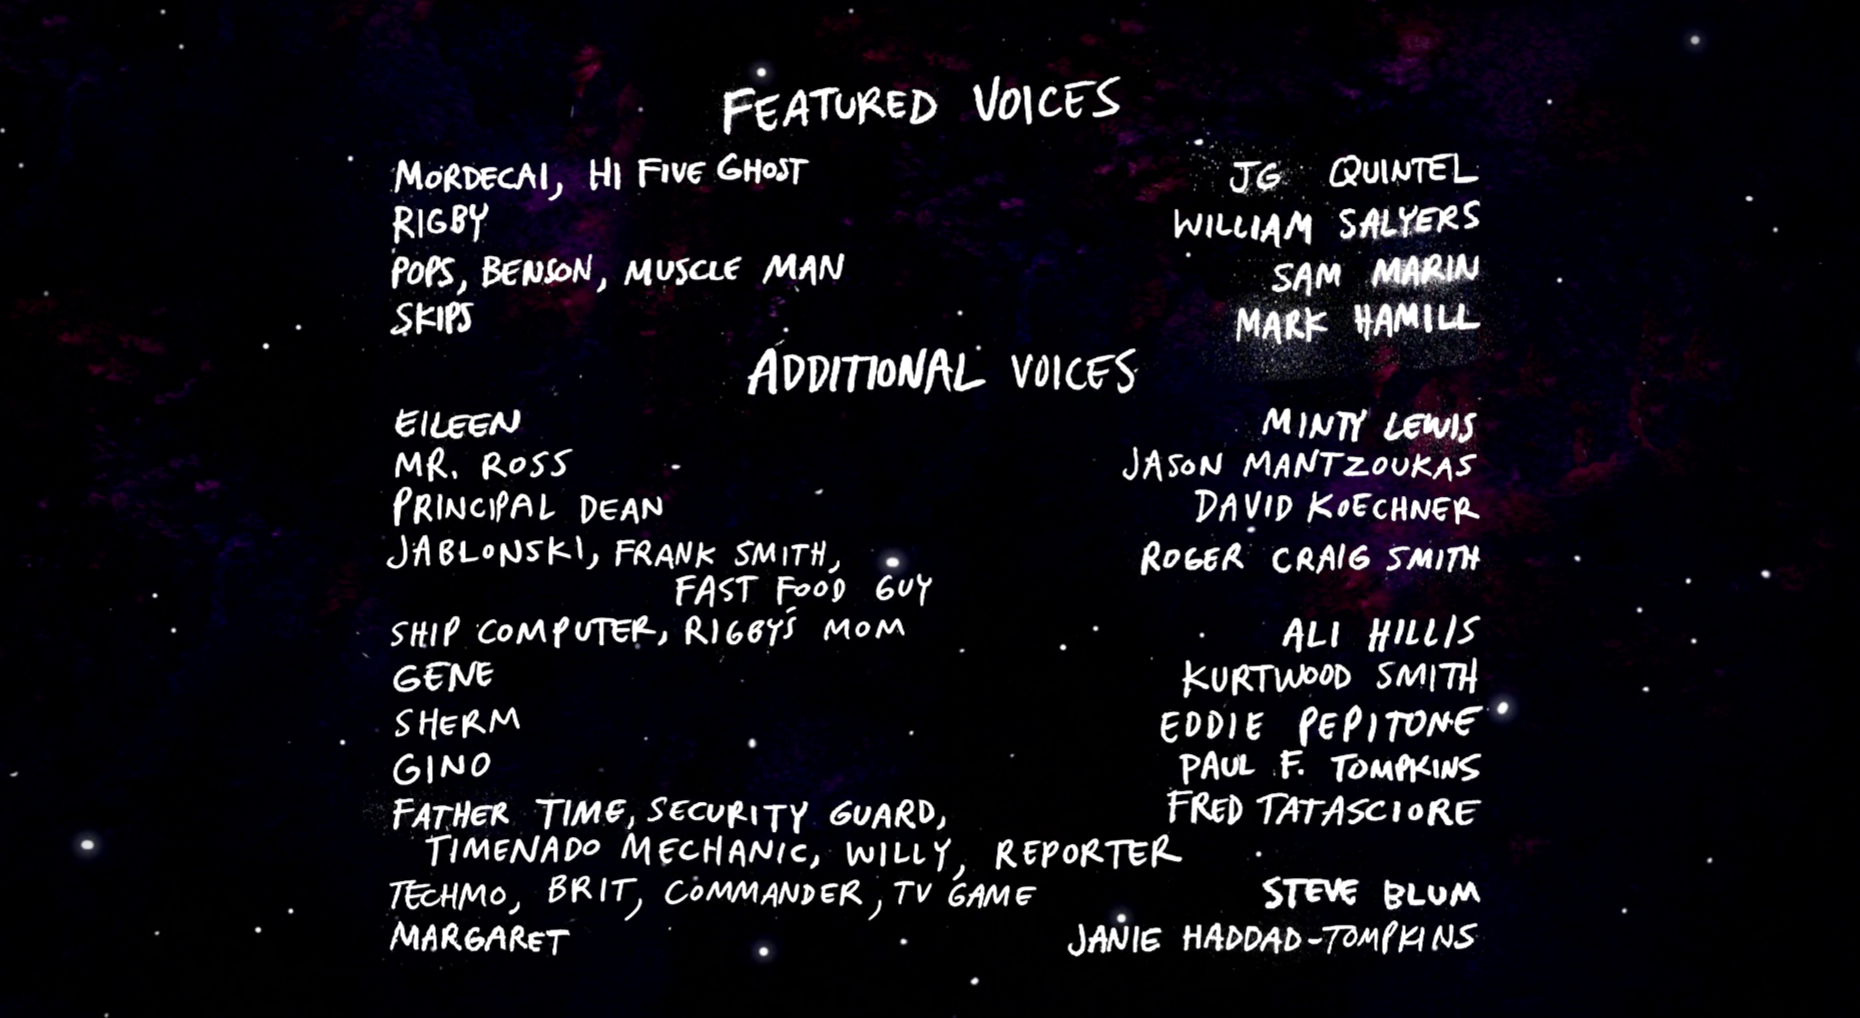 FEATURED VOICES
MORDECAI, HI FIVE GHOST JG QUINTEL
RIGBY WILLIAM SALYERS
POPS, BENSON, MUSCLE MAN SAM MARIN
SKIPS MARK HAMILL
ADDITIONAL VOICES
EILEEN MINTY LEWIS
MR. ROSS JASON MANTZOUKAS
PRINCIPAL DEAN DAVID KOECHNER
JABLONSKI, FRANK SMITH, ROGER CRAIG SMITH
FAST FOOD GUY
SHIP COMPUTER, RIGBY'S MOM ALI HILLIS
GENE KURTWOOD SMITH
SHERM EDDIE PEPITONE
GINO PAUL F. TOMPKINS
FATHER TIME, SECURITY GUARD, FRED TATASCIORE
TIMENADO MECHANIC, WILLY, REPORTER
TECHMO, BRIT, COMMANDER, TV GAME STEVE BLUM
MARGARET JANIE HADDAD-TOMPKINS